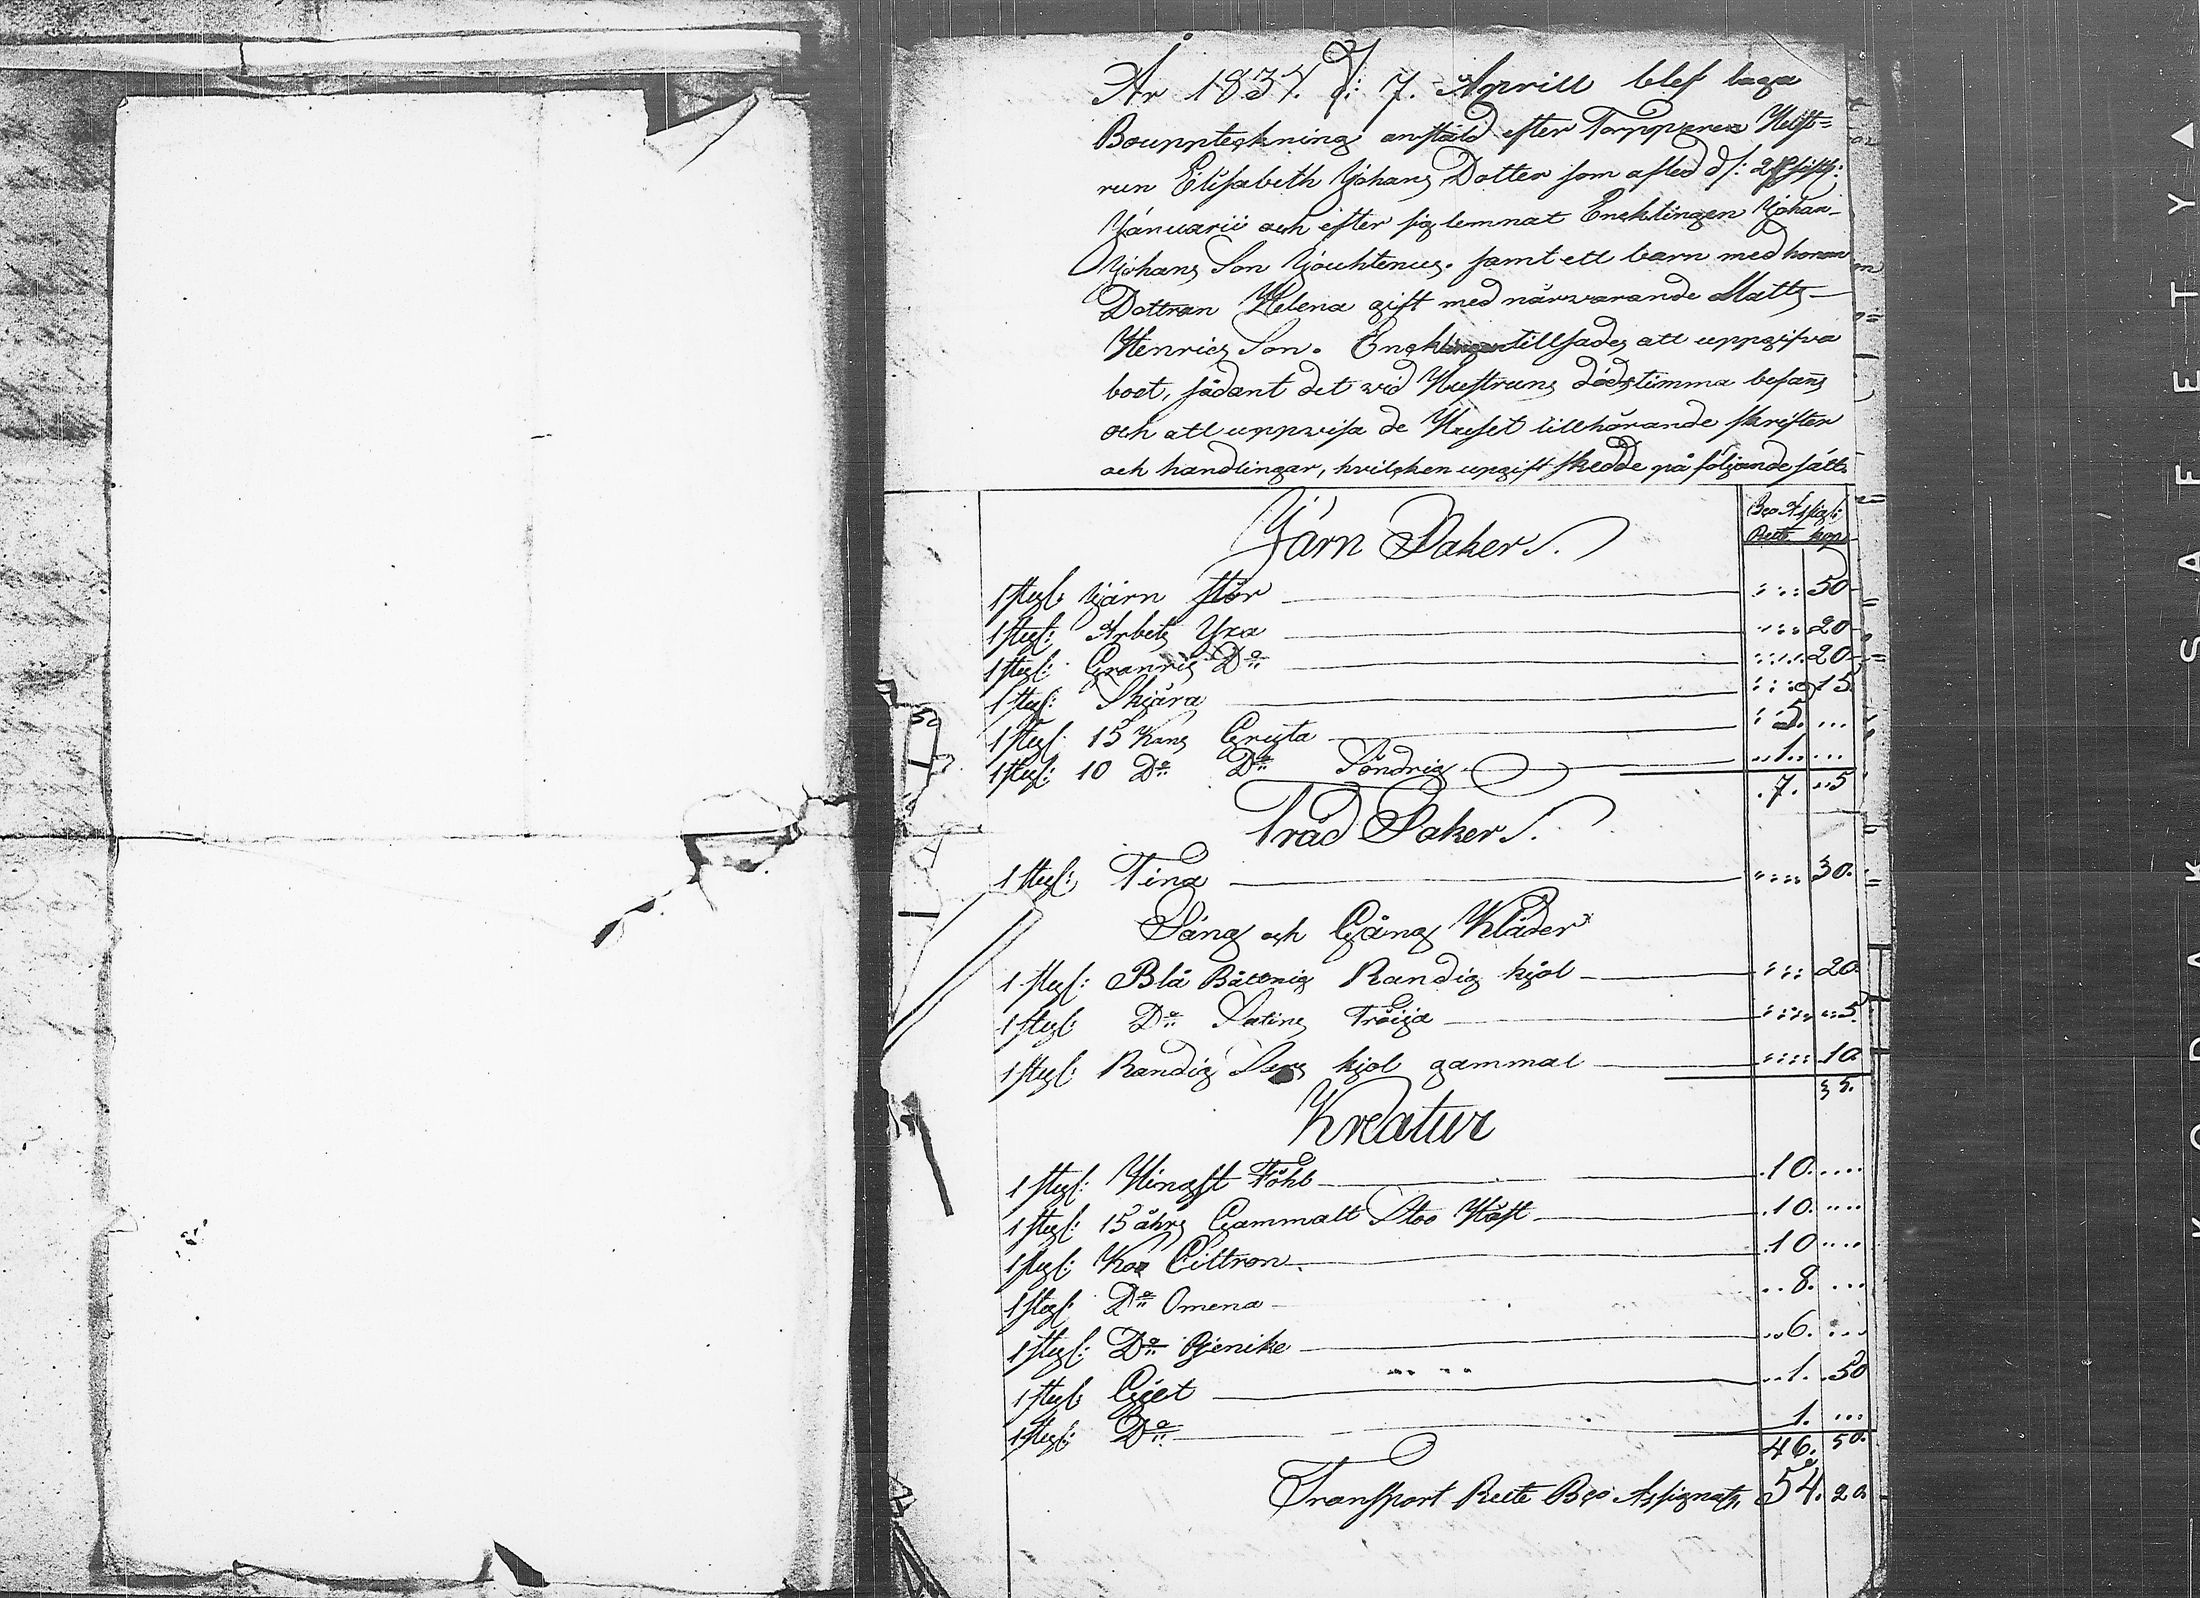 År 1834. d: 7. Aprill blef laga
Bouppteckning anstäld efter Torpparen Hust=
run Elisabeth Johans Dotter som afled d: sistl:
Januarii och efter sig lemnat Encklingen Johan
Johans Son samt ett barn med honom
Dottran Helena gift med närvarande Matts
Henrics Son. Encklingen tillsades att uppgifva
boet, sådant det vid Hustruns dödstimma befans
och att uppvisa de Huset tillhörande skrifter
och handlingar, hvilcken upgift skedde på följande sätt:
Bco Assign:
Järn Saker.
Rub kop
1 styck: Järn stör 50
1 styck: Arbets Yxa 20
1 styck: Granris Do 20
1 styck: Skjära 15
1 styck: 15 Kans Gryta 5.
1 styck: 10 Do Do Söndrig 1.
7. 5
Träd Saker.
1 styck: Tina 30.
Säng och Gång Kläder
1 styck: Blå Båttnig Randig kjol 20.
1 styck: Do Satins Tröija 5.
1 styck: Randig Sers kjol gammal 10
35.
Kreatur
1 styck: Hingst Fohl 10.
1 styck: 15 åhrs Gammalt Stoo Häst 10.
1 styck: Koo Cittron 10
1 styck: Do Omena 8.
1 styck: Do 6.
1 styck: Gjet 1. 50
1 styck: Do 1.
46. 50.
Transport Rub Bco Assignats. 54. 20.
50
KODAK SAFETY